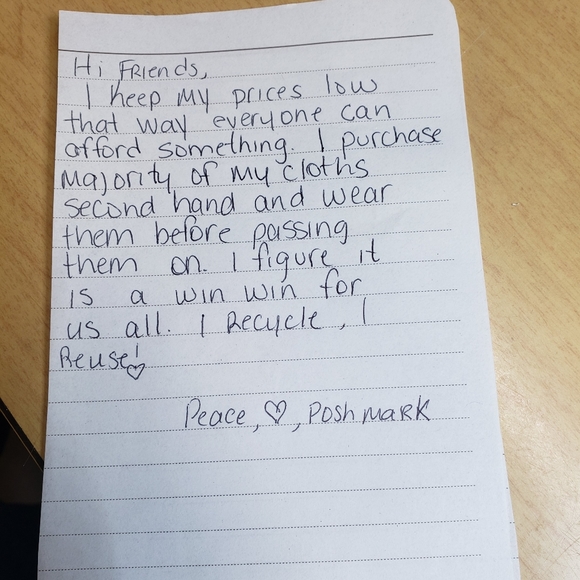 Hi Friends,
I keep my prices low
that way everyone can
afford something. I purchase
majority of my cloths
second hand and wear
them before passing
them on. I figure it
is a win win for
us all. I Recycle, I
Reuse!♡
Peace, ♡, Poshmark